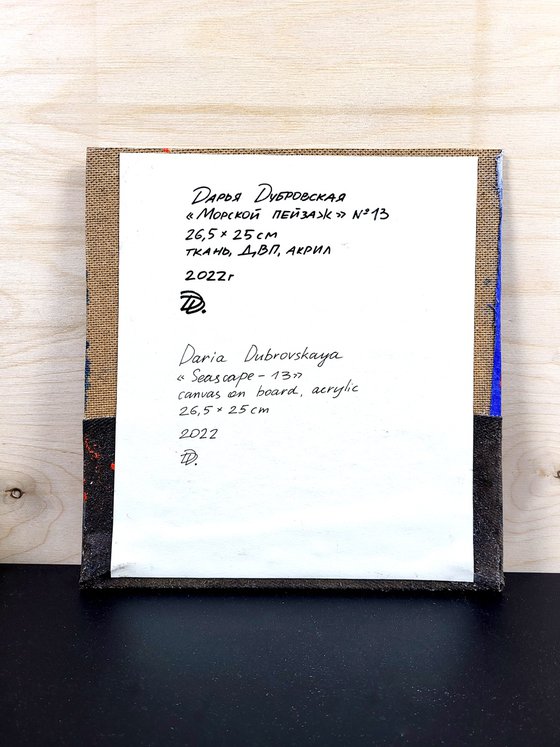 Дарья Дубровская
«Морской пейзаж» №13
26,5 × 25 см
ткань, ДВП, акрил
2022г
DD.
Daria Dubrovskaya
«Seascape - 13»
canvas on board, acrylic
26,5 × 25 cm
2022
DD.